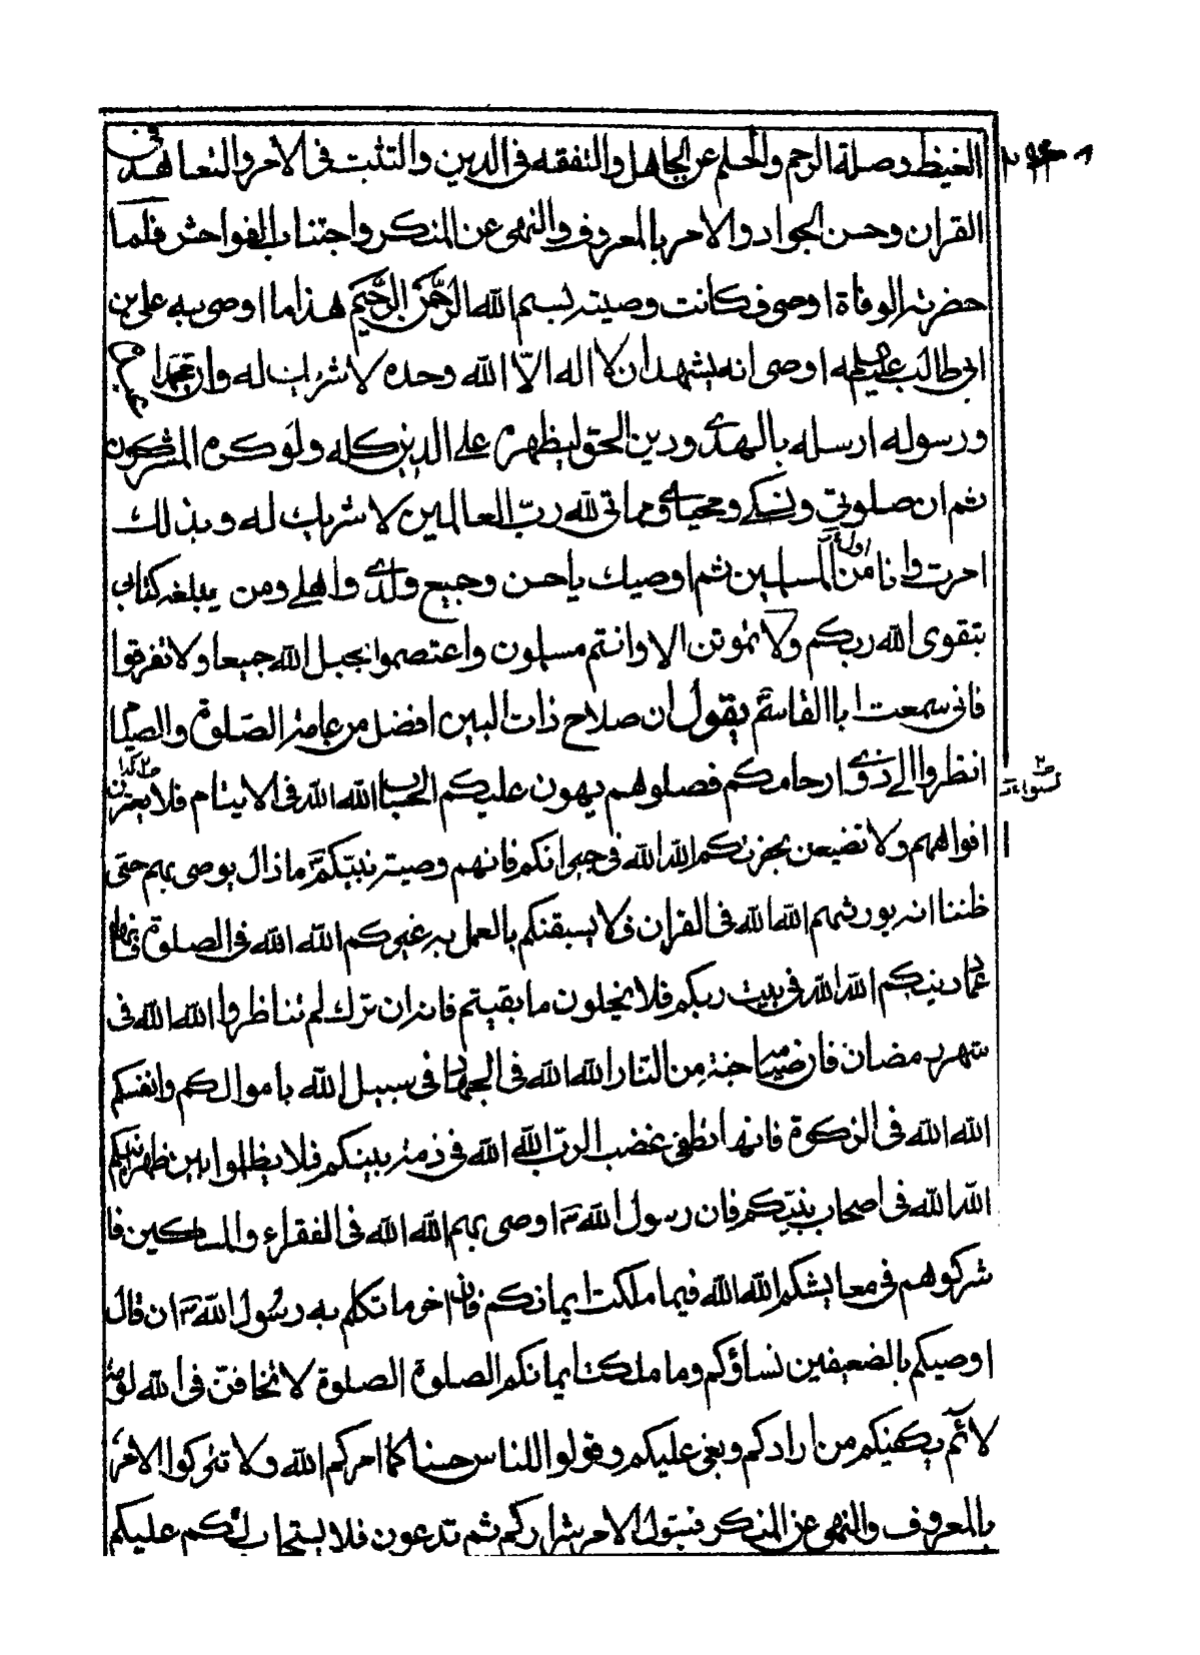 الغيظ وصلة الرحم والحلم عن الجاهل والتفقه فى الدين والتثبت فى الامر والتعاهد فى
القران وحسن الجوار والامر بالمعروف والنهى عن المنكر واجتناب الفواحش فلما
حضرته الوفاة اوصى فكانت وصيته بسم الله الرَّحمن الرَّحيم هذا ما اوصى به على بن
ابى طالب اوصى انه يشهد ان لا اله الّا الله وحده لا شريك له وان محمدا
ورسوله ارسله بالهدى ودين الحق ليظهره على الدين كله ولو كره المشركون
ثم ان صلوتى ونسكى ومحياى ومماتى لله رب العالمين لا شريك له وبذلك
امرت وانا من المسلمين ثم اوصيك ياحسن وجميع ولدى واهلى ومن يبلغه كتابى
بتقوى الله ربكم ولا تموتن الا وانتم مسلمون واعتصموا بحبل الله جميعا ولا تفرقوا
فانى سمعت ابا القاسم يقول ان صلاح ذات البين افضل من عامة الصلوة والصيام
انظروا الى ذوى ارحامكم فصلوهم يهون عليكم الحساب الله الله فى الايتام فلا
افواههم ولا تضيعن بحضرتكم الله الله فى جيرانكم فانهم وصية نبيكم ما زال يوصى بهم حتى
ظننا انه يورثهم الله الله فى القران فلا يسبقنكم بالعمل به غيركم الله الله فى الصلوة فانها
عماد دينكم الله الله فى بيت ربكم فلا يخلون ما بقيتم فانه ان ترك لم تناظروا الله الله فى
شهر رمضان فان صيامه جنة من النار الله الله فى الجهاد فى سبيل الله باموالكم وانفسكم
الله الله فى الزكوة فانها تطفئ غضب الرب الله الله فى ذمة نبيكم فلا يظلموا بين
الله الله فى اصحاب نبيكم فان رسول الله اوصى بهم الله الله فى الفقراء والمساكين فا
شركوهم فى معايشكم الله الله فيما ملكت ايمانكم فان اخر ما تكلم به رسول الله ان قال
اوصيكم بالضعيفين نساؤكم وما ملكت ايمانكم الصلوة الصلوة لا تخافن فى الله لومة
لائم يكفيكم من ارادكم وبغى عليكم وقولوا للناس حسنا كما امركم الله ولا تتركوا الامر
بالمعروف والنهى عن المنكر فيتولى الامر شراركم ثم تدعون فلا يستجاب لكم عليكم